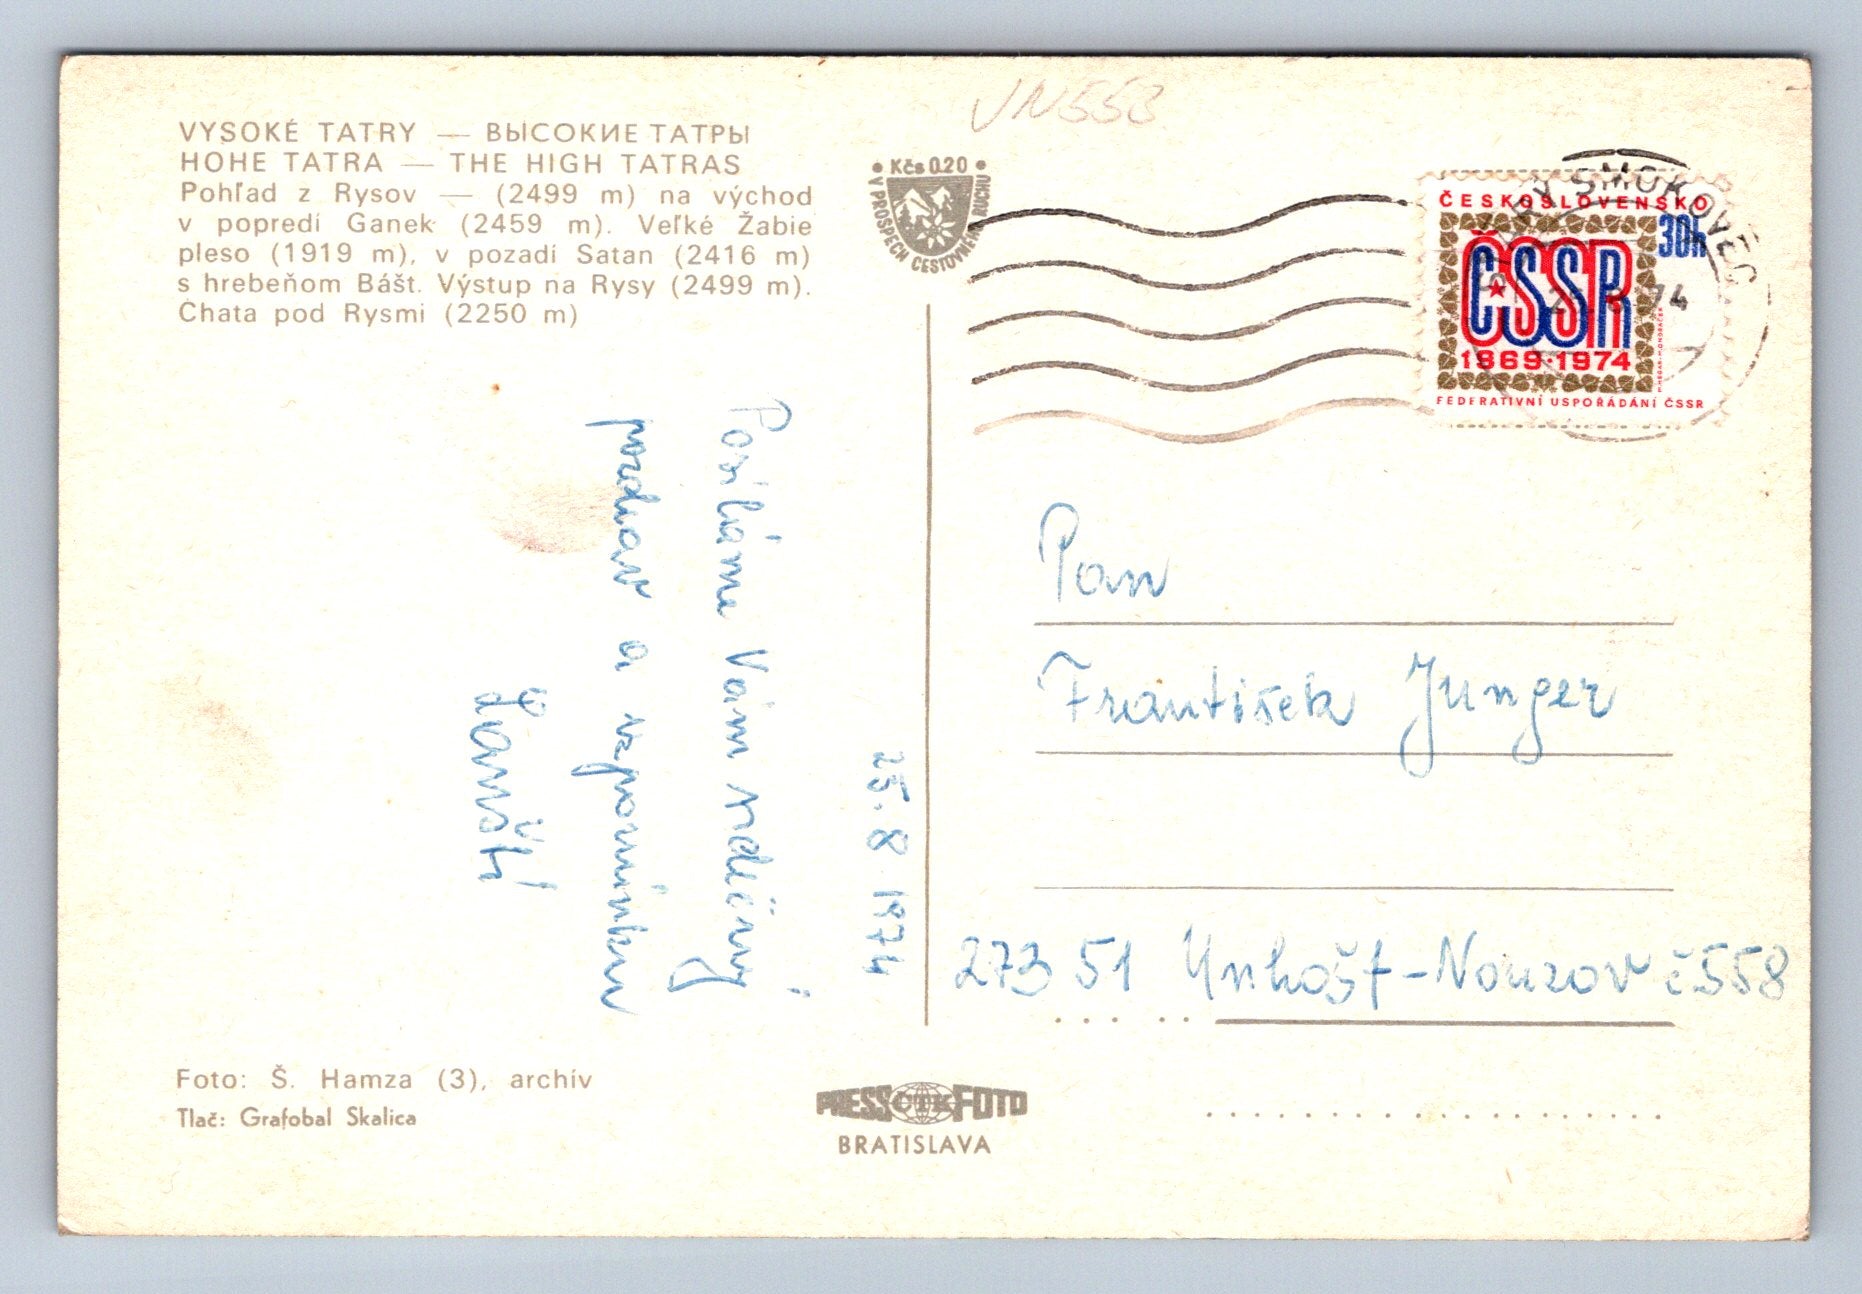 VYSOKÉ TATRY — ВЫСОКИЕ ТАТРЫ
HOHE TATRA — THE HIGH TATRAS
Pohľad z Rysov — (2499 m) na východ
v popredí Ganek (2459 m). Veľké Žabie
pleso (1919 m), v pozadí Satan (2416 m)
s hrebeňom Bášt. Výstup na Rysy (2499 m).
Chata pod Rysmi (2250 m)
VN553
• Kčs 0.20 •
V PROSPECH CESTOVNÉHO RUCHU
ČESKOSLOVENSKO
30h
ČSSR
1969·1974
FEDERATIVNÍ USPOŘÁDÁNÍ ČSSR
SMOKOVEC
25. 8. 74
25. 8. 1974
Posíláme Vám srdečný
pozdrav a vzpomínku
Pan
František Junger
273 51 Unhošť - Nouzov č 558
Foto: Š. Hamza (3), archív
Tlač: Grafobal Skalica
PRESS ČTK FOTO
BRATISLAVA